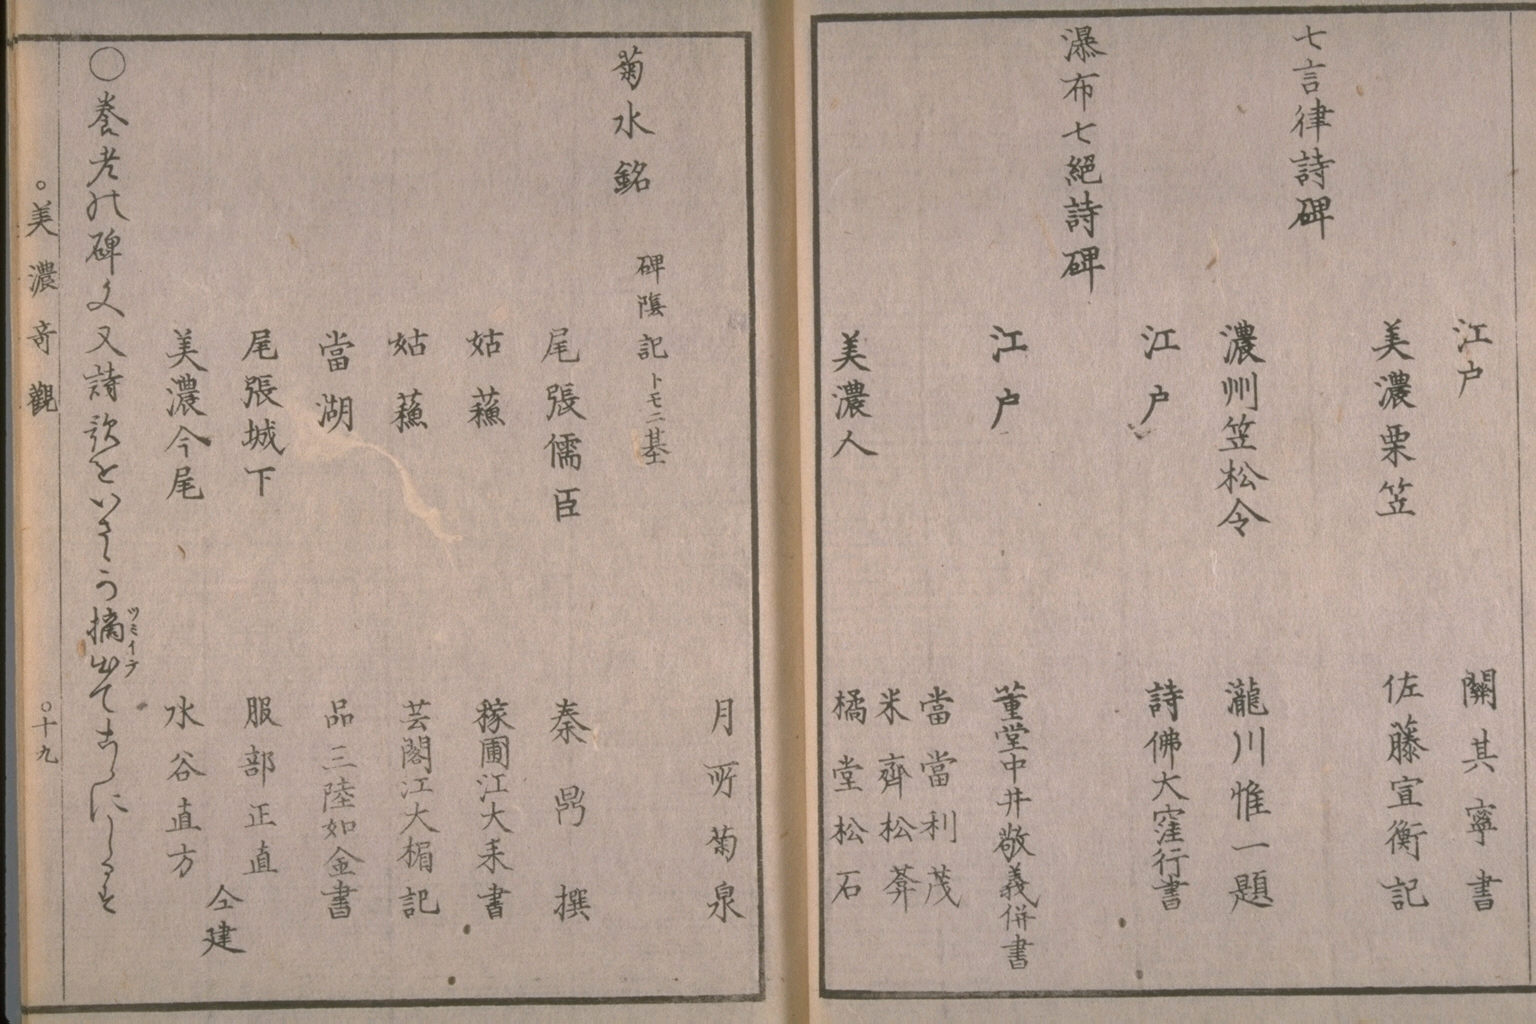 江戸 關其寧書
美濃栗笠 佐藤宜衡記
七言律詩碑
濃州笠松令 瀧川惟一題
江戸 詩佛大窪行書
瀑布七絕詩碑
江戸 董堂中井敬義併書
當當利茂
米齊松莽
美濃人 橘堂松石
月所菊泉
菊水銘 碑陰記トモ二基
尾張儒臣 秦鼎撰
姑蘓 稼圃江大来書
姑蘓 芸閣江大楣記
當湖 品三陸如金書
尾張城下 服部正直
仝建
美濃今尾 水谷直方
○養老の碑文又詩歌をいさゝか摘出てこゝにしるす
ツミイデ
○美濃奇觀 ○十九